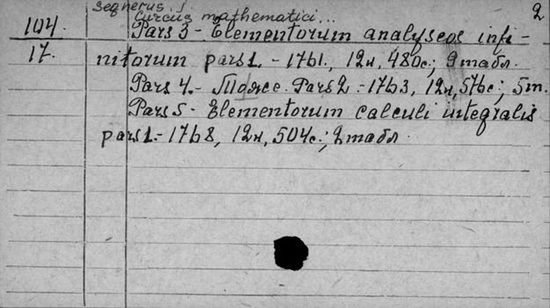 Segnerus J.
Cursus mathematici... 2
104. Pars 3 - Elementorum analyseos infi-
17. nitorum pars 1. - 1761, 12н, 480с; 9 табл.
Pars 4. - Тоже. Pars 2. - 1763, 12н, 576с; 5т.
Pars 5 - Elementorum calculi integralis
pars 1. - 1768, 12н, 504с.; 9 табл.